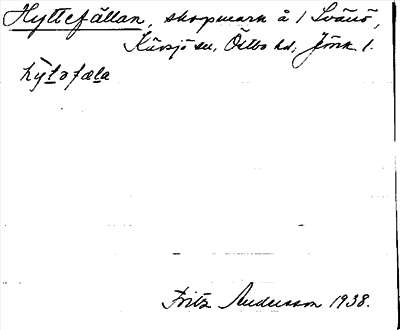 Hyttefällan, skogsmark å 1 Svänö,
Kävsjö sn, Östbo hd, Jönk. l.
hỳtəfæla
Fritz Andersson 1938.